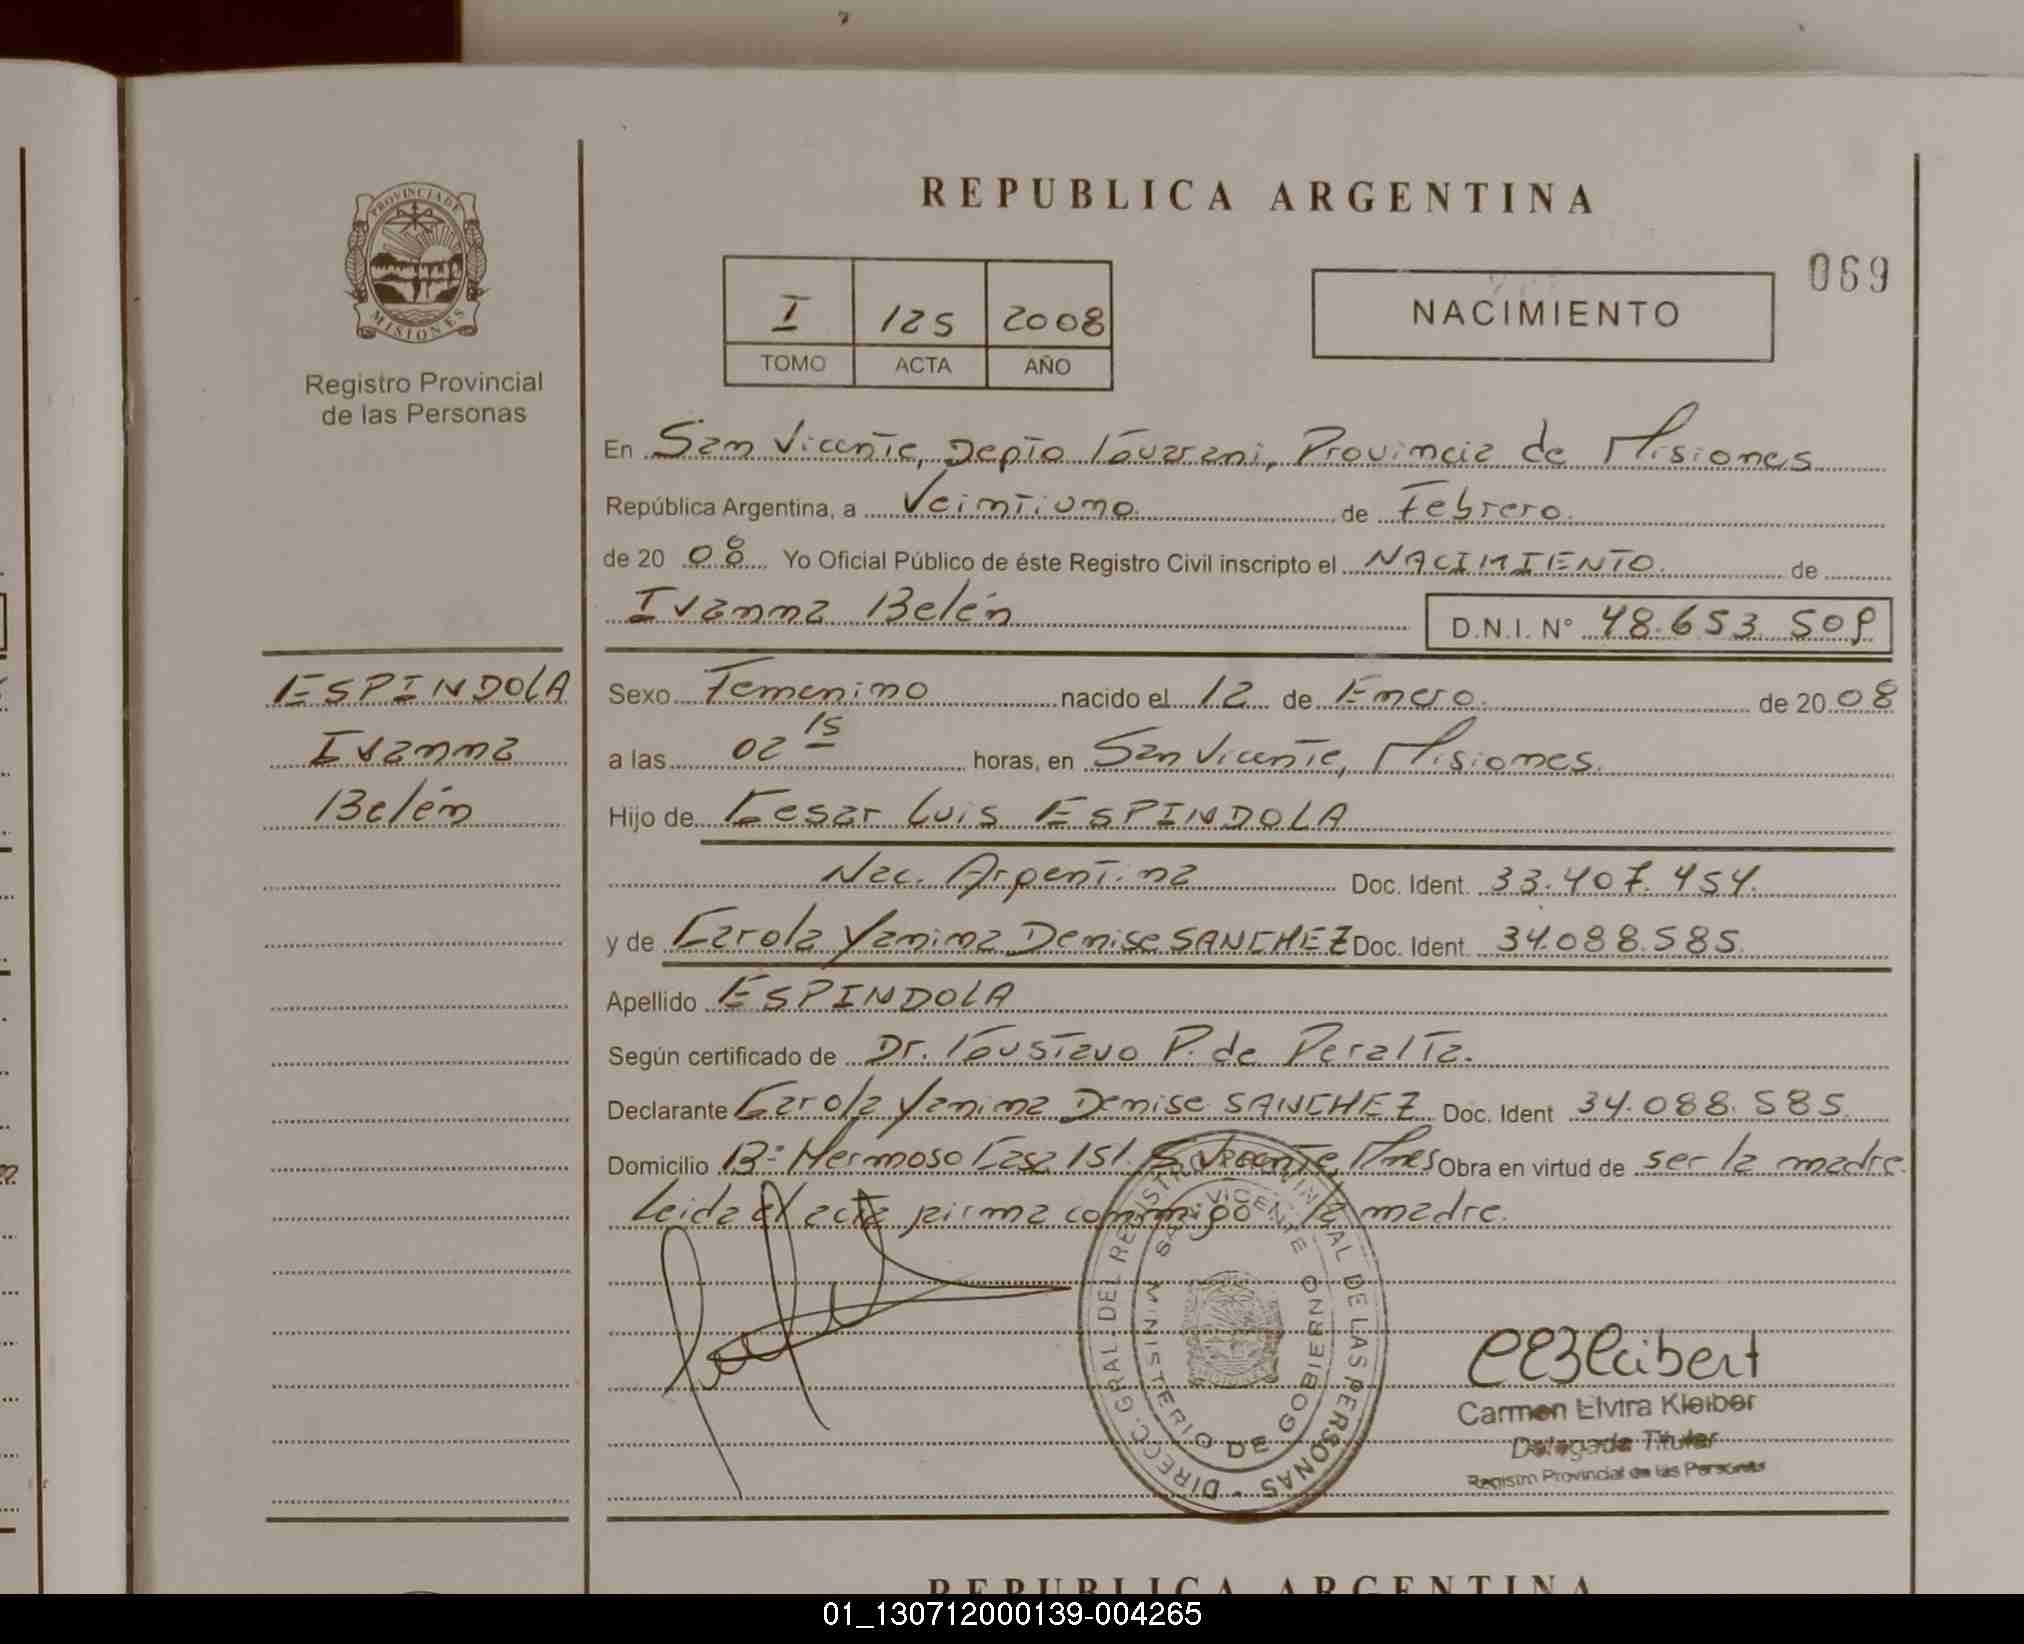 PROVINCIA DE
MISIONES
Registro Provincial
de las Personas
ESPINDOLA
Ivanna
Belén
REPUBLICA ARGENTINA
069
I 125 2008
TOMO ACTA AÑO
NACIMIENTO
En San Vicente, Depto Guarani, Provincia de Misiones
República Argentina, a Veintiuno de Febrero.
de 20 08 Yo Oficial Público de éste Registro Civil inscripto el NACIMIENTO. de
Ivanna Belén D.N.I. N° 48.653.509
Sexo Femenino nacido el 12 de Enero. de 20 08
a las 02 15 horas, en San Vicente, Misiones.
Hijo de Cesar Luis ESPINDOLA
Nac. Argentina Doc. Ident. 33.407.454.
y de Carola Yanina Denise SANCHEZ Doc. Ident. 34.088.585.
Apellido ESPINDOLA
Según certificado de Dr. Gustavo P. de Peralta.
Declarante Carola Yanina Denise SANCHEZ Doc. Ident 34.088.585
Domicilio B° Hermoso Casa 151. S. Vicente, Mnes Obra en virtud de ser la madre.
Leida el acta firma conmigo la madre.
DIRECC. GRAL. DEL REGISTRO PROVINCIAL DE LAS PERSONAS
SAN VICENTE
MINISTERIO DE GOBIERNO
Carmen Elvira Kleiber
Delegada Titular
Registro Provincial de las Personas
REPUBLICA ARGENTINA
01_130712000139-004265